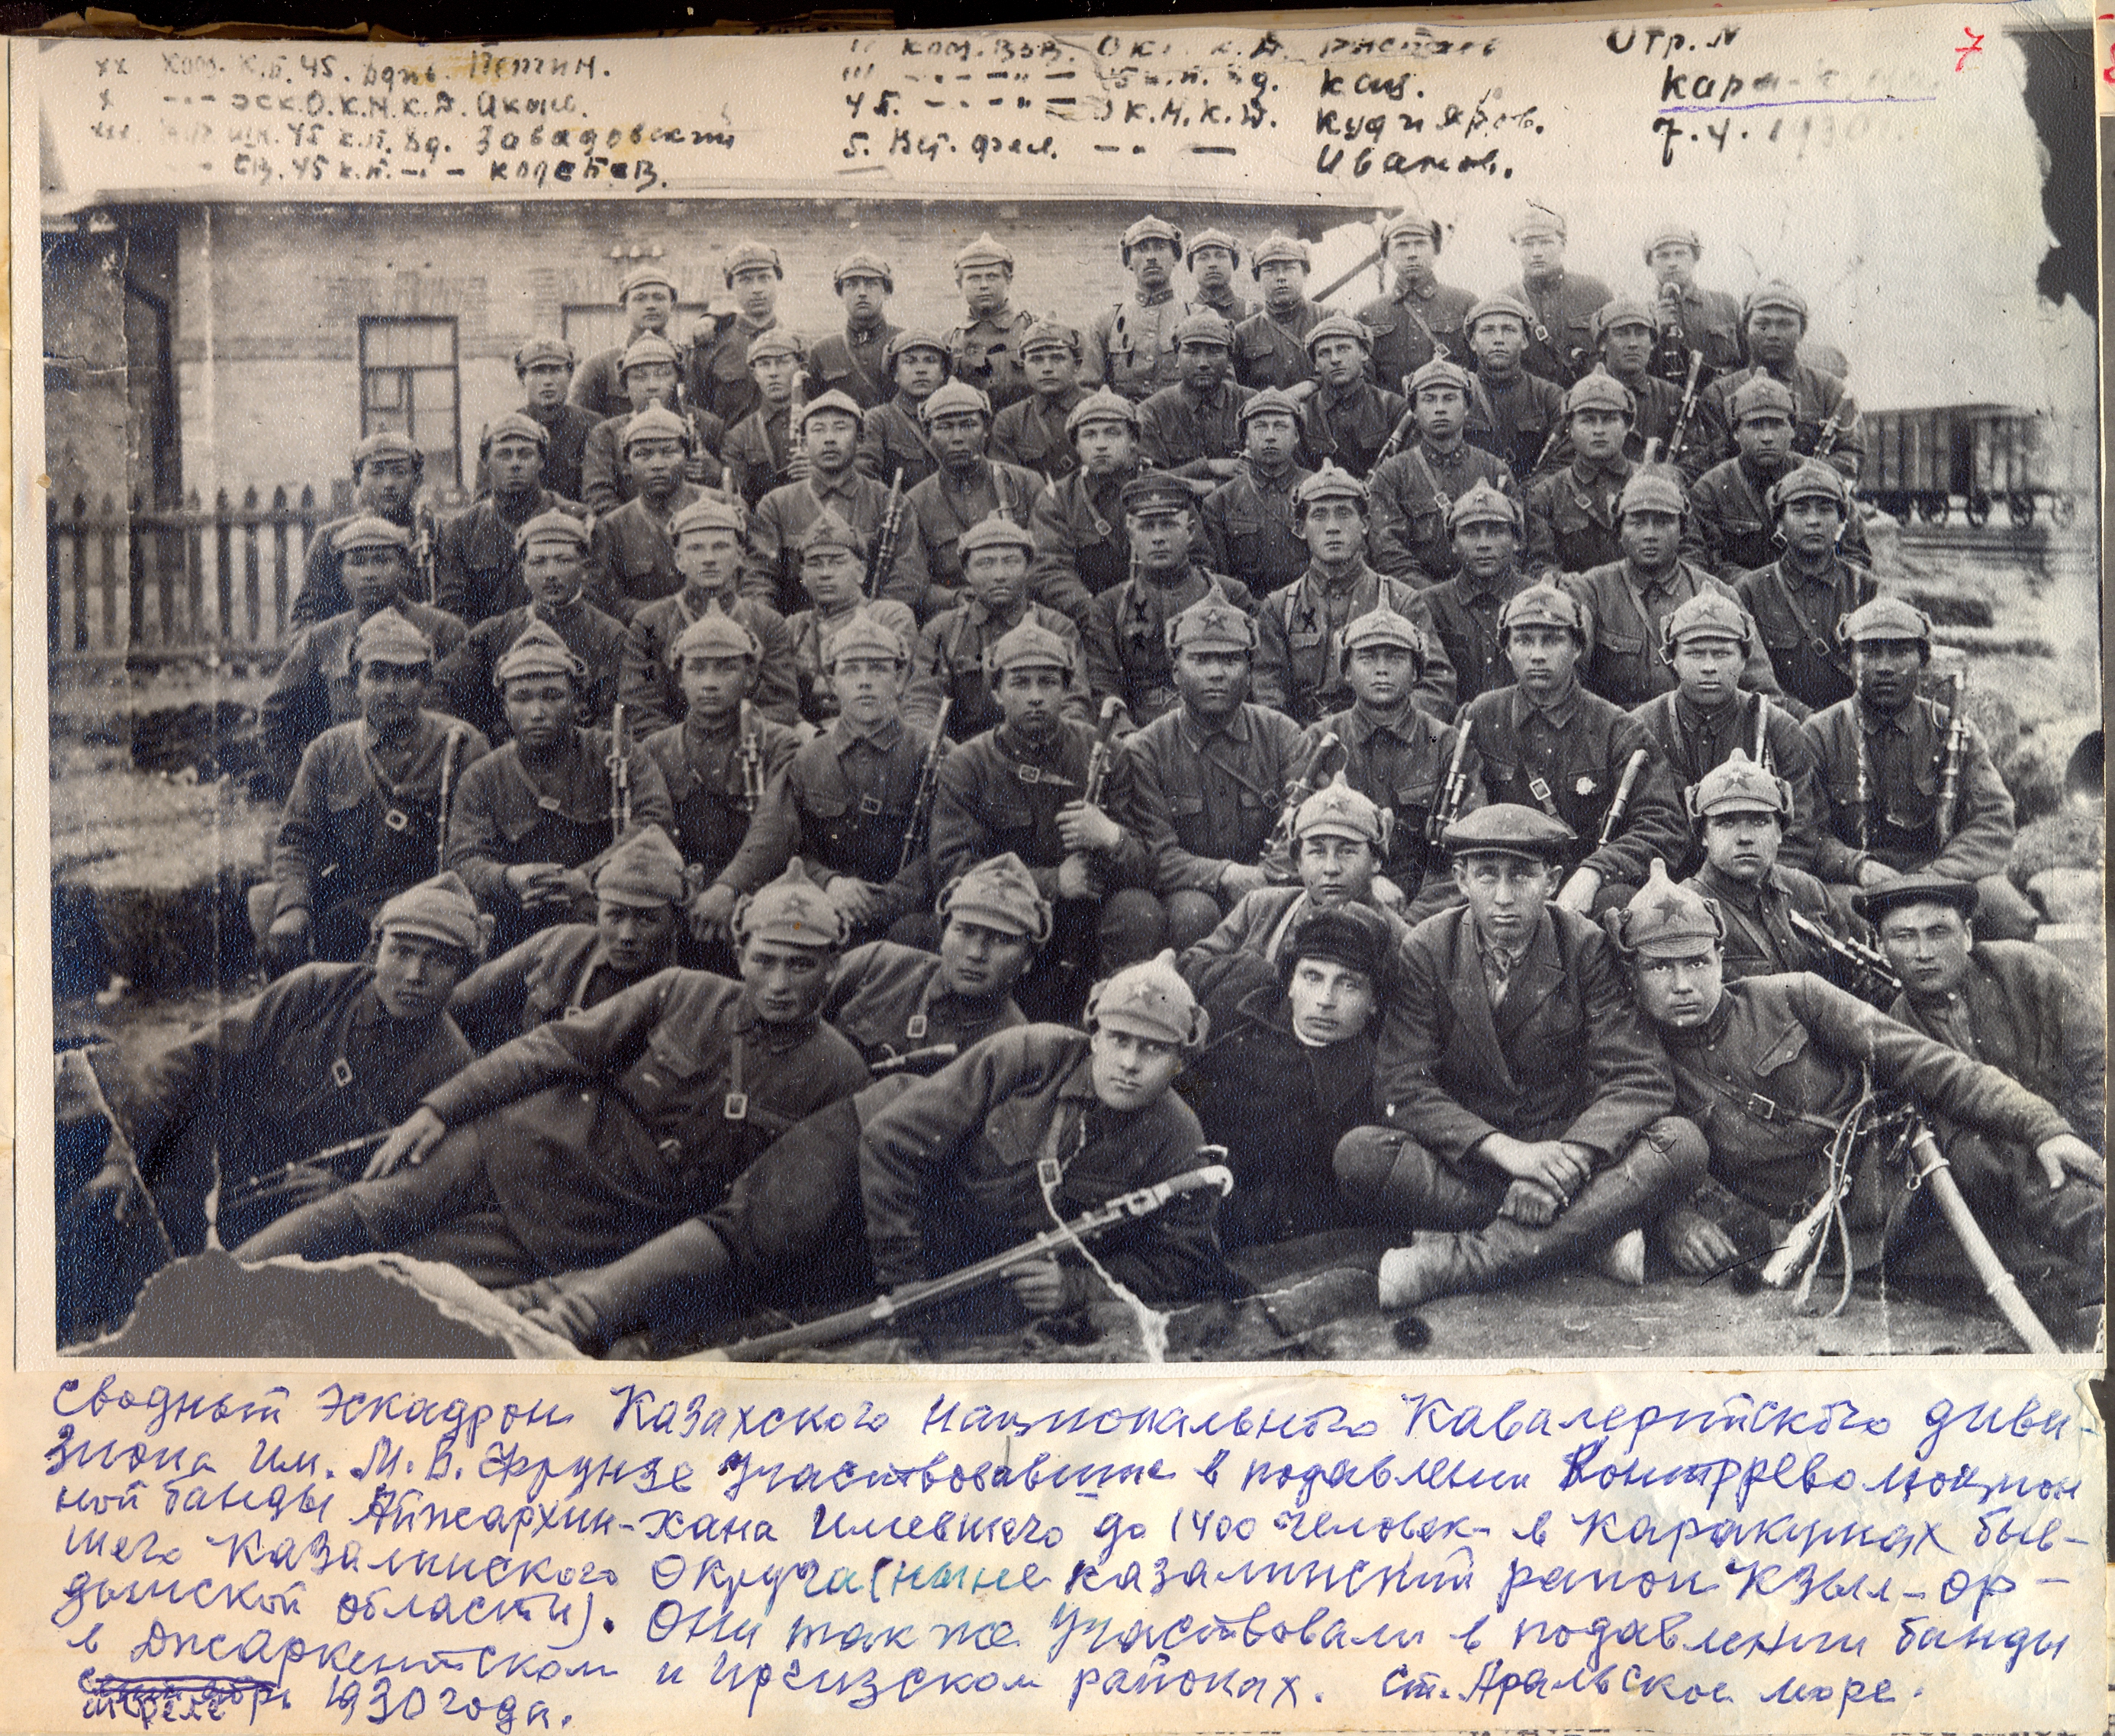 xx Ком. К.П. 45. Вдпв. Петин.
x -·- эск.О.К.Н.К.Д.
xxx. 45 к.п. Вд. Завадовский
45 к.п. -·-
'' ком. взв. О к. к. д.
''' -·-·-''- 45 к.п. Вд. Кац.
4 Б. -·-·-''- О К.Н.К.Д. Кудияров.
5. Вет. фел. -·- Иванов.
Отр. N
Кара-
7.4.1930г.
7
Сводный Эскадрон Казахского Национального Кавалерийского диви-
зиона им. М.В. Фрунзе Участвовавшие в подавлении Контрреволюцион
ной банды Айжархин-хана Имевшего до 1400 человек в Каракумах быв-
шего Казалинского Округа (ныне Казалинский район Кзыл-ор-
дынской области). Они так же Участвовали в подавлении банды
в Джаркентском и Иргизском районах. Ст. Аральское море.
апреле 1930 года.